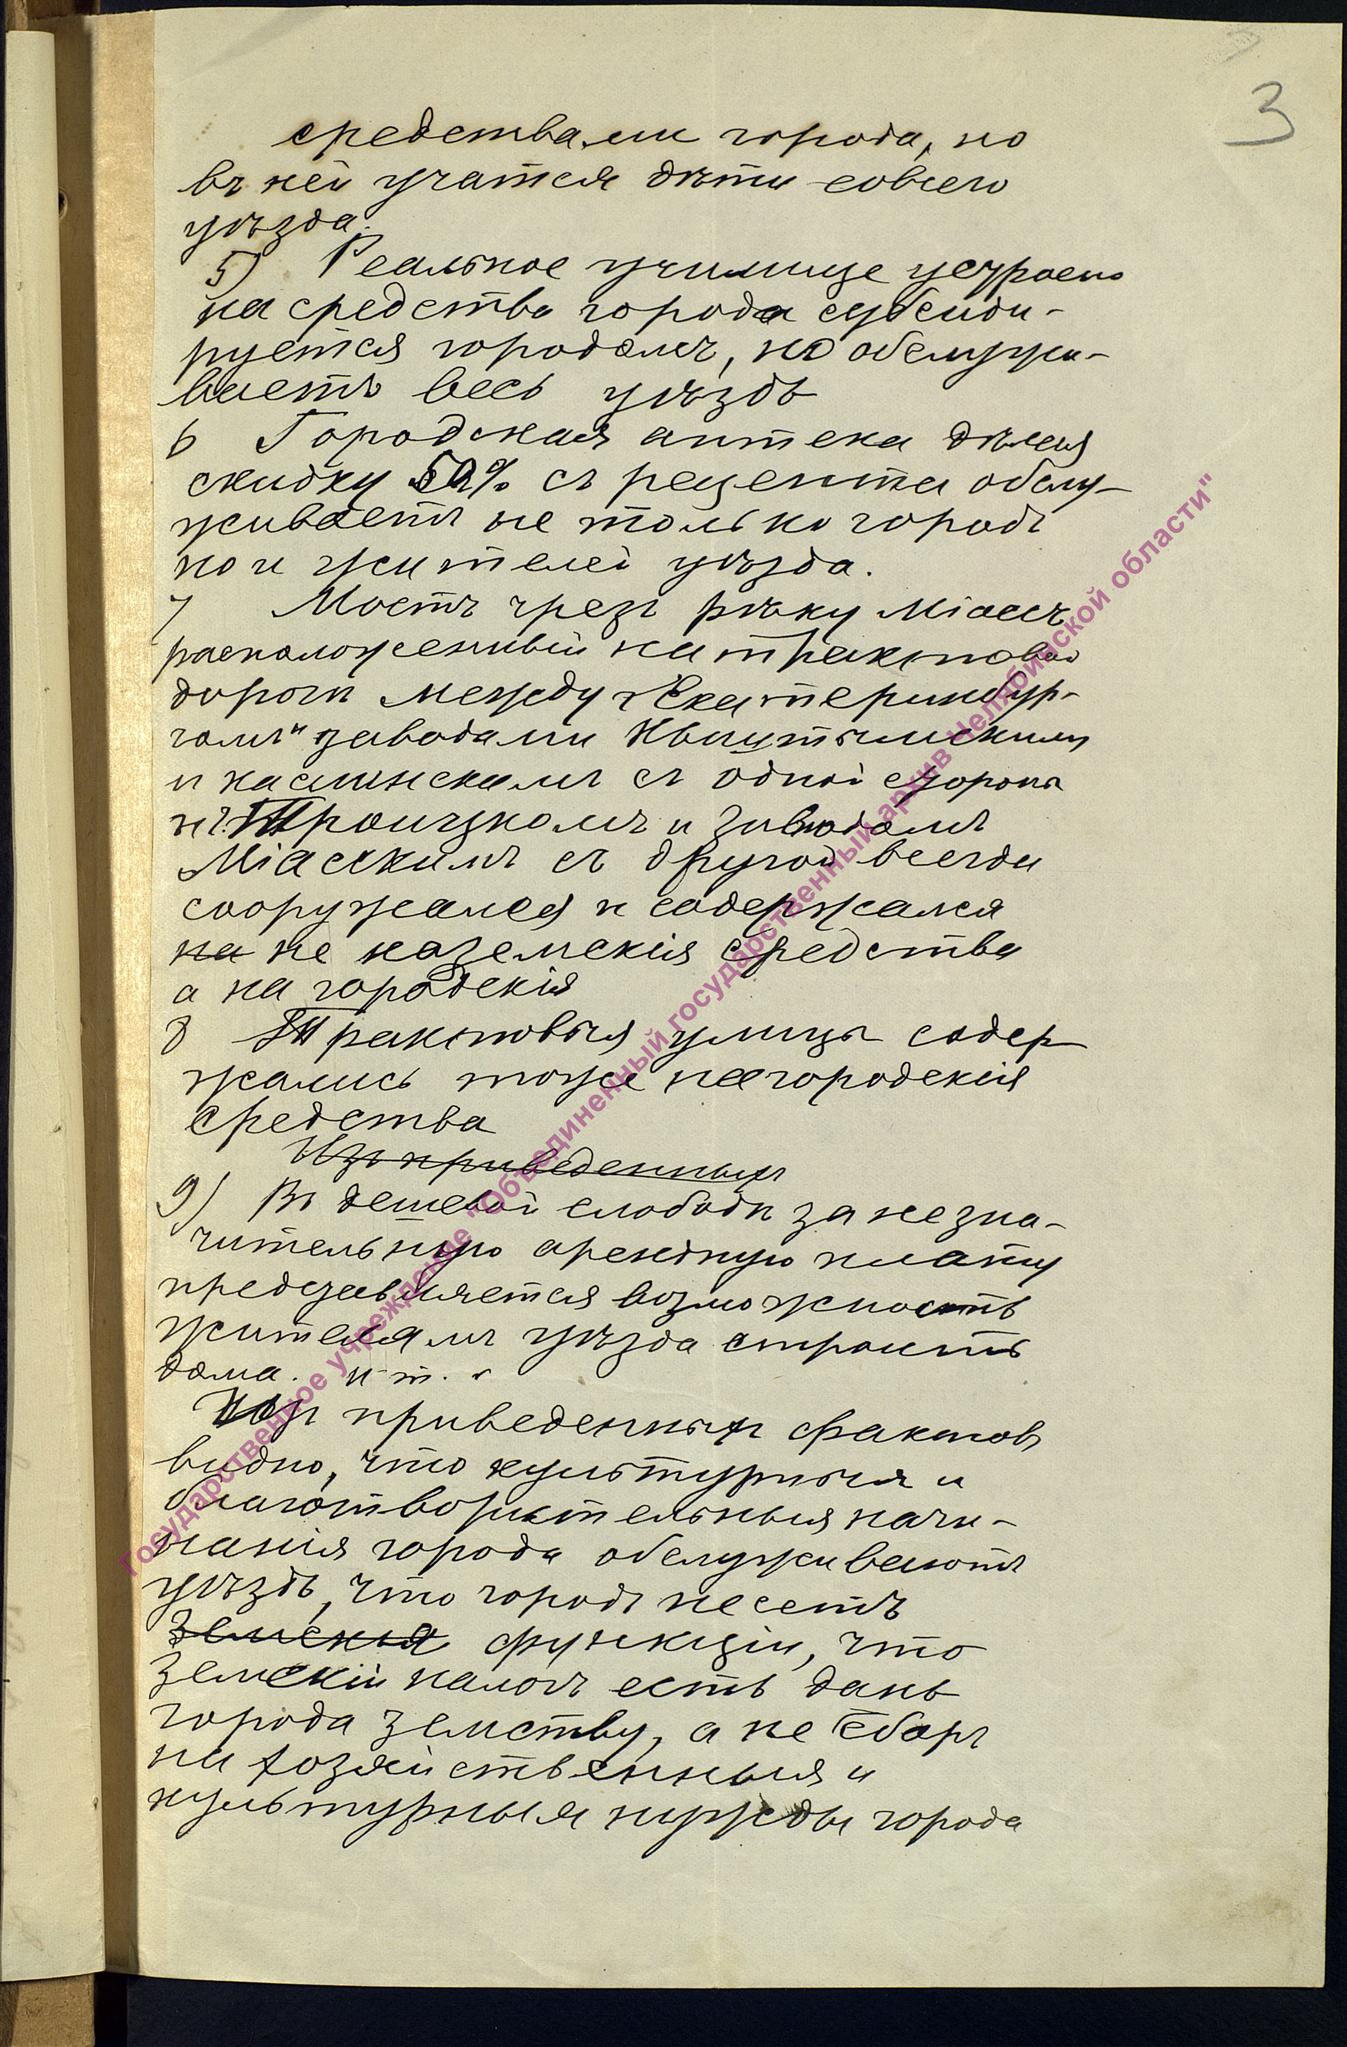 3
средствами города, но
въ ней учатся дѣти со всего
уѣзда.
5) Реальное училище устроено
на средства города субсиди-
руется городомъ, но обслужи-
ваетъ весь уѣздъ
6 Городская аптека дѣлая
скидку 50% съ рецепта обслу-
живаетъ не только городъ
но и жителей уѣзда.
7 Мостъ чрезъ рѣку Міассъ
расположенный на трактовой
дороги между Екатеринбур-
гомъ и заводами Кыштымскимъ
и Каслинскимъ съ одной стороны
и г. Троицкомъ и заводомъ
Міасскимъ съ другой всегда
сооружался и содержался
на не на земскія средства
а на городскія
8 Трактовыя улицы содер
жались тоже на городскія
средства
Изъ приведенныхъ
9) Въ дешевой слободѣ за незна-
чительную арендную плату
представляется возможность
жителямъ уѣзда строить
дома. и т.
Изъ приведенныхъ фактовъ
видно, что культурныя и
благотворительныя начи-
нанія города обслуживаютъ
уѣздъ, что городъ несетъ
земскія функціи, что
земскій налогъ есть дань
города земству, а не сборъ
на хозяйственныя и
культурныя нужды города
Государственное учреждение "Объединенный государственный архив Челябинской области"